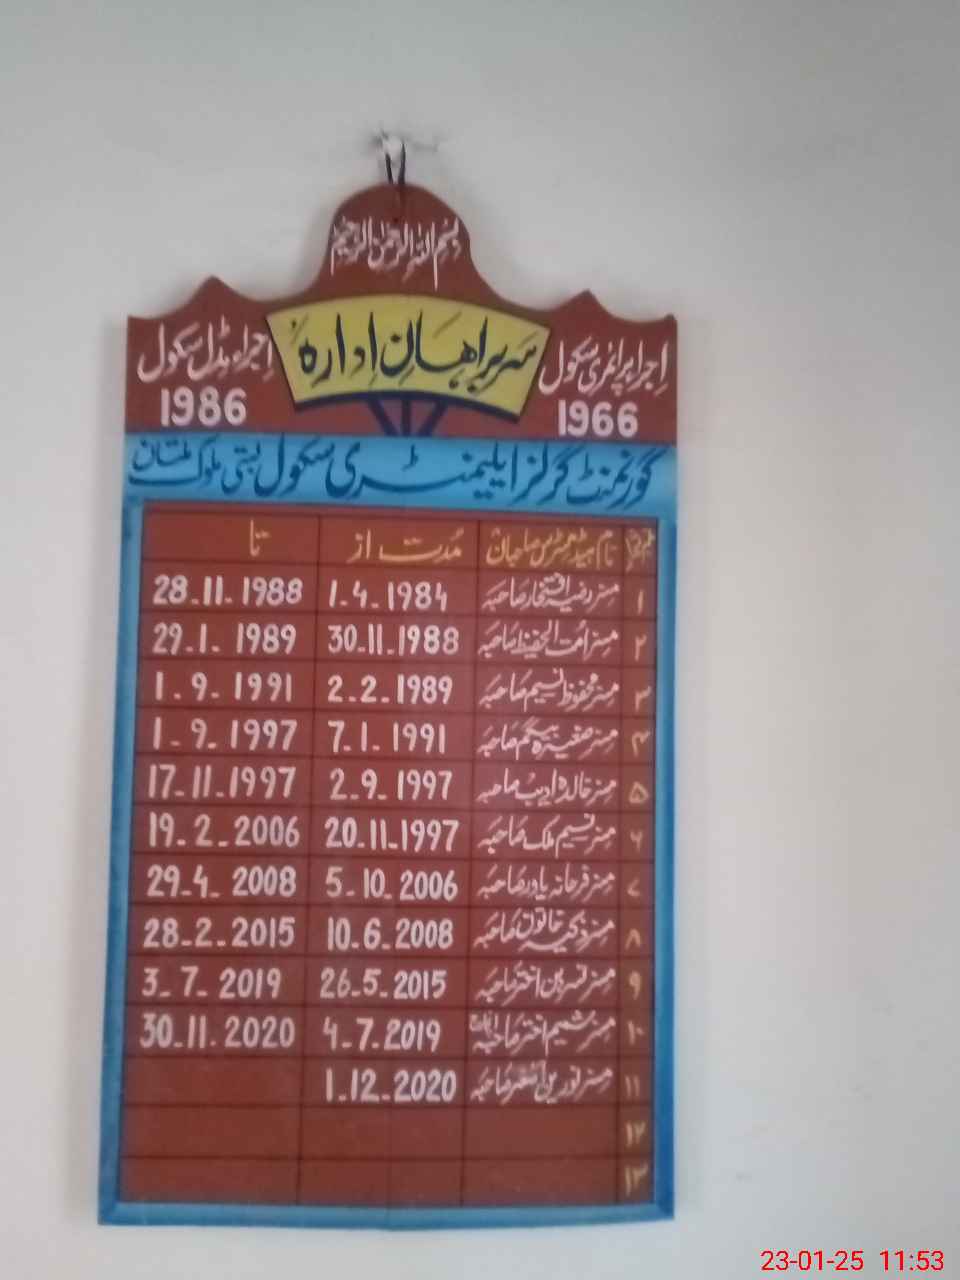 بسم اللہ الرحمٰن الرحیم
سربراہانِ ادارہ
اجراء پرائمری سکول
1966
اجراء مڈل سکول
1986
گورنمنٹ گرلز ایلیمنٹری سکول بستی ملوک ملتان
نمبر شمار نام ہیڈ مسٹرس صاحبان مُدت از تا
۱ مسز رضیہ افتخار صاحبہ 1.4.1984 28.11.1988
۲ مسز امت الحفیظ صاحبہ 30.11.1988 29.1.1989
۳ مسز محفوظ نسیم صاحبہ 2.2.1989 1.9.1991
۴ مسز صغیرہ بیگم صاحبہ 7.1.1991 1.9.1997
۵ مسز خالدہ ادیب صاحبہ 2.9.1997 17.11.1997
۶ مسز نسیم ملک صاحبہ 20.11.1997 19.2.2006
۷ مسز فرحانہ یاور صاحبہ 5.10.2006 29.4.2008
۸ مسز ذکیہ خاتون صاحبہ 10.6.2008 28.2.2015
۹ مسز نسرین اختر صاحبہ 26.5.2015 3.7.2019
۱۰ مسز شمیم اختر صاحبہ 4.7.2019 30.11.2020
۱۱ مسز نورین صاحبہ 1.12.2020
۱۲
۱۳
23-01-25 11:53